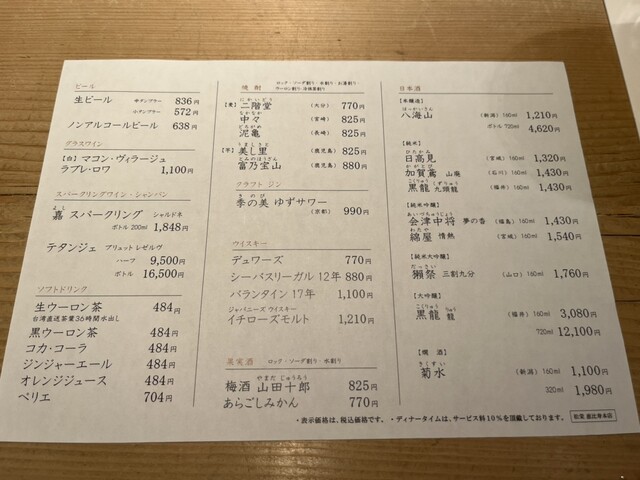 ビール
生ビール ㊥タンブラー 836円
㊥タンブラー 572円
ノンアルコールビール 638円
グラスワイン
【白】マコン・ヴィラージュ
ラブレ・ロワ 1,100円
スパークリングワイン・シャンパン
よし
嘉 スパークリング シャルドネ
ボトル 200ml 1,848円
テタンジェ ブリュット レゼルヴ
ハーフ 9,500円
ボトル 16,500円
ソフトドリンク
生ウーロン茶 484円
台湾直送茶葉36時間水出し
黒ウーロン茶 484円
コカ・コーラ 484円
ジンジャーエール 484円
オレンジジュース 484円
ペリエ 704円
焼酎
ロック・ソーダ割り・水割り・お湯割り
ウーロン割り・法蓮草割り
にかいどう
【麦】二階堂 (大分) 770円
なかなか
中々 (宮崎) 825円
どろがめ
泥亀 (長崎) 825円
うましさと
【芋】美し里 (鹿児島) 880円
とみのほうざん
富乃宝山 (鹿児島) 880円
クラフト ジン
きのび
季の美 ゆずサワー
(京都) 990円
ウイスキー
デュワーズ 770円
シーバスリーガル 12年 880円
バランタイン 17年 1,100円
ジャパニーズ ウイスキー
イチローズモルト 1,210円
果実酒 ロック・ソーダ割り・水割り
やまだ じゅうろう
梅酒 山田十郎 825円
あらごしみかん 770円
日本酒
【本醸造】
はっかいさん
八海山 (新潟) 160ml 1,210円
ボトル 720ml 4,620円
【純米】
ひたかみ
日高見 (宮城) 160ml 1,320円
かがとび
加賀鳶 山廃 (石川) 160ml 1,430円
こくりゅう くずりゅう
黒龍 九頭龍 (福井) 160ml 1,430円
【純米吟醸】
あいづちゅうじょう
会津中将 夢の香 (福島) 160ml 1,430円
わたや
綿屋 情熱 (宮城) 160ml 1,540円
【純米大吟醸】
だっさい
獺祭 三割九分 (山口) 160ml 1,760円
【大吟醸】
こくりゅう りゅう
黒龍 龍 (福井) 160ml 3,080円
720ml 12,100円
【燗酒】
きくすい
菊水 (新潟) 160ml 1,100円
320ml 1,980円
・表示価格は、税込価格です。・ディナータイムは、サービス料10%を頂戴しております。